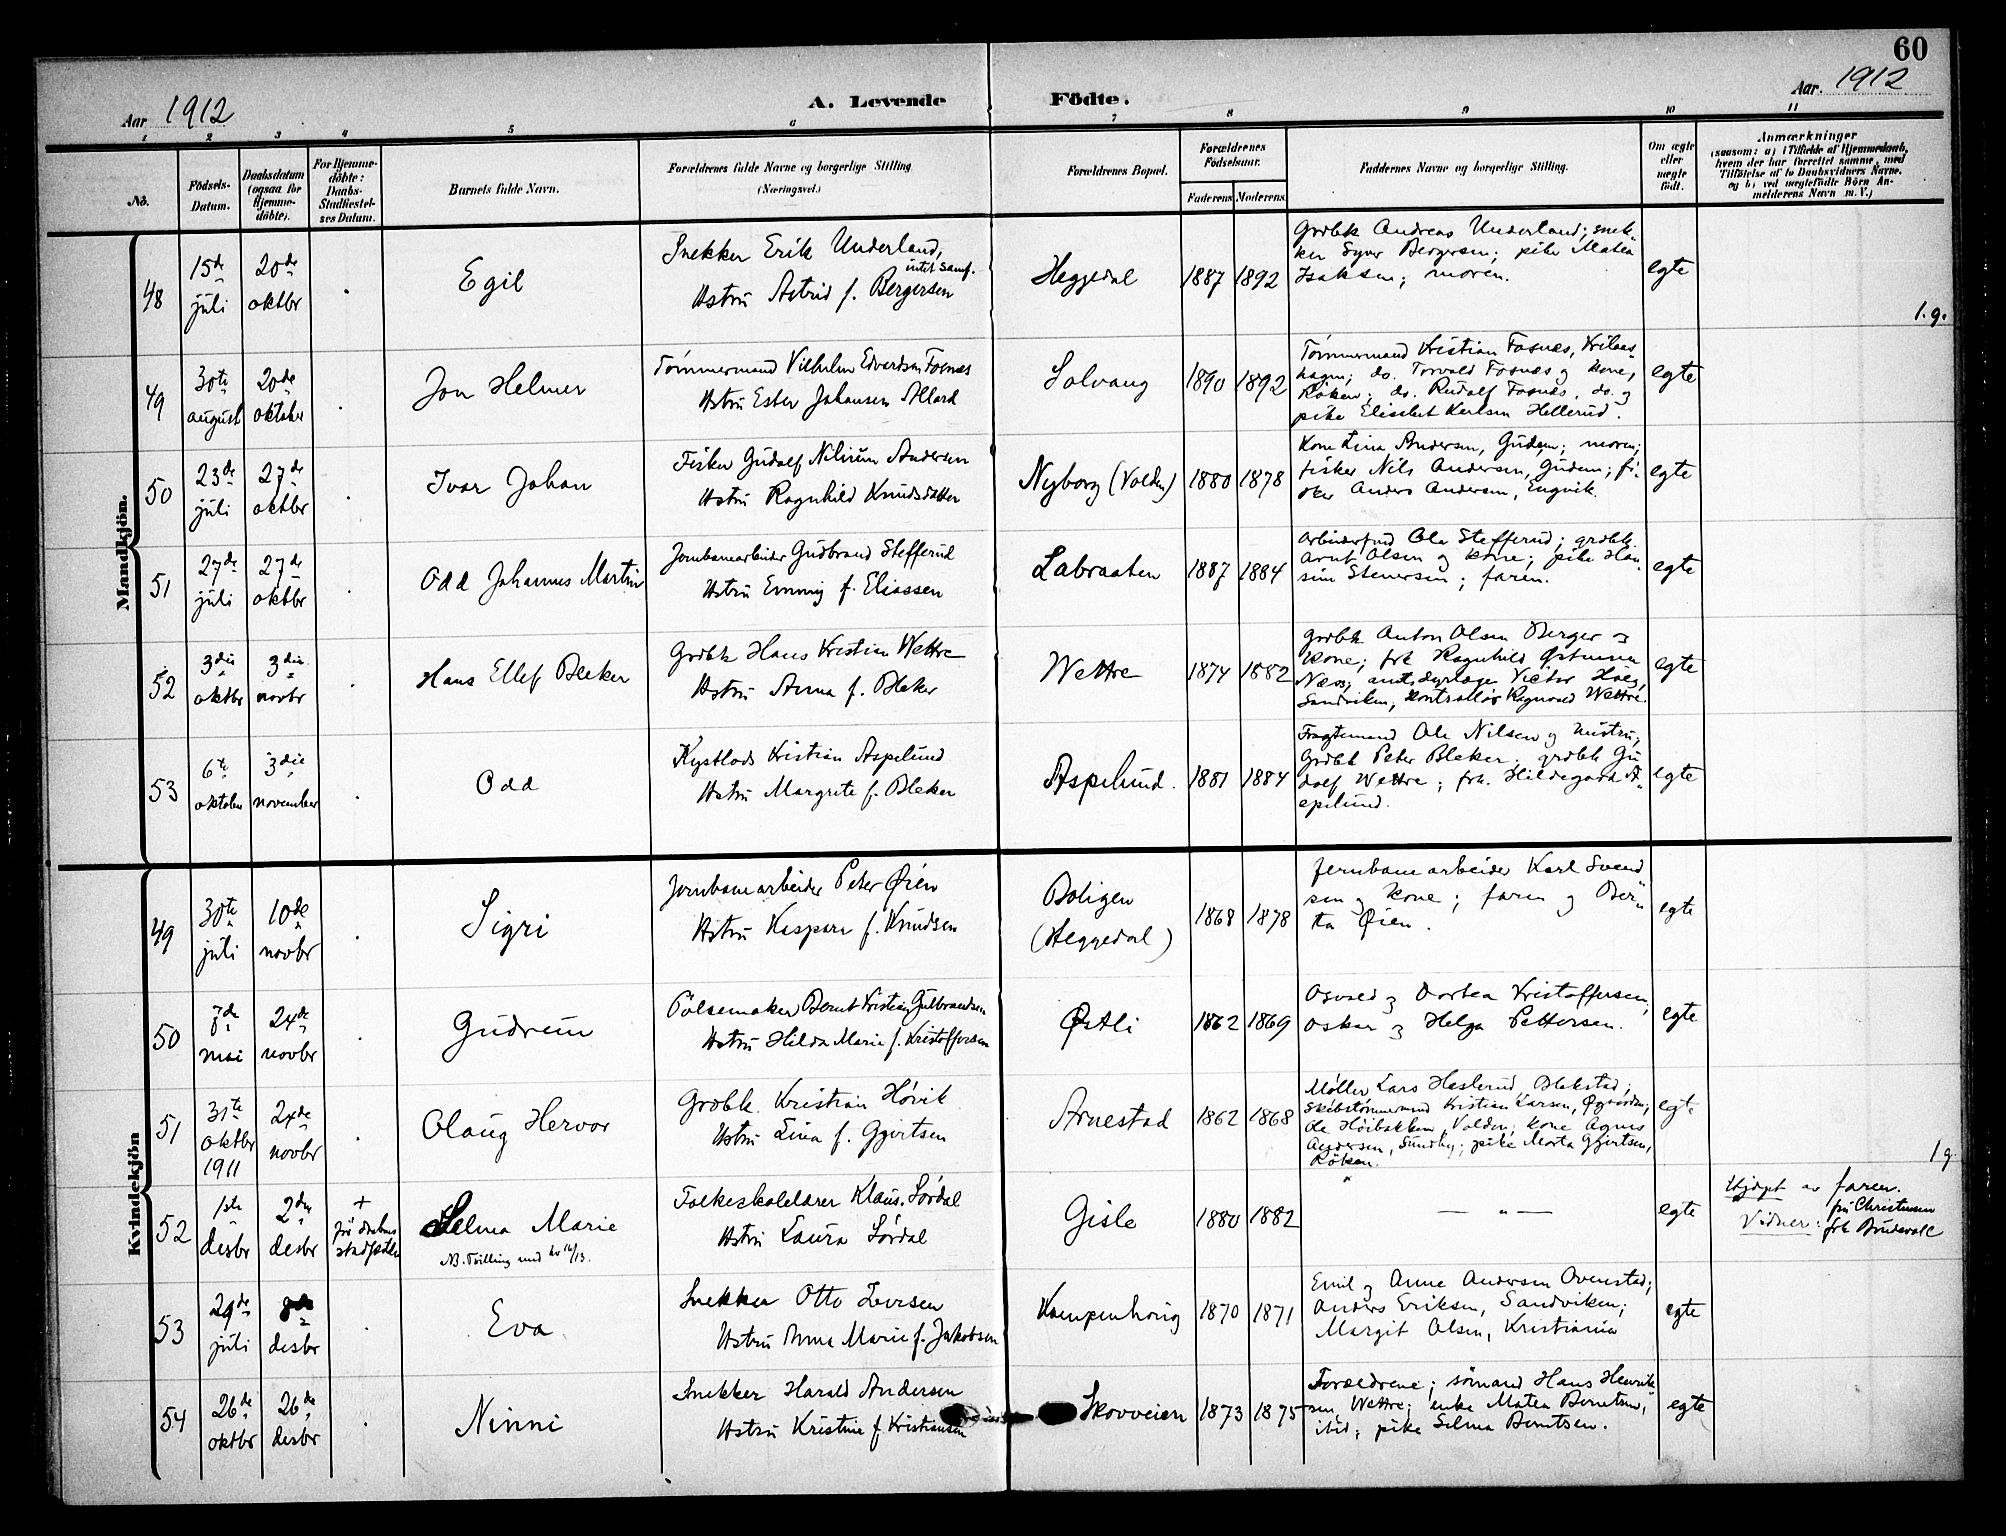 60
Aar 1912
A. Levende
Födte.
Aar. 1912
1 2 3 4 5 6 7 8 9 10 11
No.
Födsels-Datum.
Daabsdatum (ogsaa for Hjemmedöbte).
For Hjemmedöbte: Daabs-Stadfæstelses Datum.
Barnets fulde Navn.
Forældrenes fulde Navne og borgerlige Stilling (Næringsvei.)
Forældrenes Bopæl.
Forældrenes Födselsaar.
Faderens Moderens
Faddernes Navne og borgerlige Stilling.
Om ægte eller uægte födt.
Anmærkninger
(saasom: a) i Tilfælde af Hjemmedaab, hvem der har forrettet samme, med Tilföielse af to Daabsvidners Navne, og b) ved uægtefödte Börn Anmelderens Navn m. V.)
Mandkjön.
48
15de juli
20de oktbr
Egil
Snekker Erik Underland,
intet samf.
Hstru Astrid f. Bergersen
Heggedal
1887 1892
Grdbk Andreas Underland; snek-
ker Syver Bergersen; pike Matea
Isaksen; moren.
egte
1.g.
49
30te august
20de oktober
Jon Helmer
Tømmermand Vilhelm Edvardsen Fosnæs
Hstru Ester Johansen Allard
Solvang
1890 1892
Tømmermand Kristian Fosnæs,
hagen; do. Torvald Fosnæs og kone,
Röken; do. Rudolf Fosnæs, do. og
pike Elisebet Karlsen Hellerud.
egte
50
23de juli
27de oktbr
Ivar Johan
Fisker Gudolf Nilsen Andersen
Hstru Ragnhild Knudsdatter
Nyborg (Volden)
1880 1878
Kone Lina Andersen, Gudem; moren;
fisker Nils Andersen, Gudem; fi-
sker Anders Andersen, Engvik.
egte
51
27de juli
27de oktbr
Odd Johannes Martin
Jernbanearbeider Gudbrand Stefferud
Hstru Emmy f. Eliassen
Labraaten
1887 1884
Arbeiderfmd Ole Stefferud; grdbk.
Arnt Olsen og kone; pike Han-
sine Stenersen; faren.
egte
52
3die oktbr
3die novbr
Hans Ellef Bleker
Grdbk Hans Kristian Wettre
Hstru Anna f. Bleker
Wettre
1874 1882
Grdbk Anton Olsen Berger og
kone; frk Ragnhild
Næss; amtsdyrlæge Victor
Sandviken; kontrollør Ragnvald Wettre.
egte
53
6te oktober
3die november
Odd
Kystlods Kristian Aspelund
Hstru Margrete f. Bleker
Aspelund.
1881 1884
Fragtemand Ole Nilsen og hustru;
Grdbk Peter Bleker; grdbk Gu-
dolf Wettre; frk. Hildegaard A-
spelund.
egte
Kvindekjön
49
30te juli
10de novbr
Sigri
Jernbanearbeider Peter Øien
Hstru Kaspara f. Knudsen
Boligen
(Heggedal)
1868 1878
Jernbanearbeider Karl Svend-
sen og kone; faren og Ber-
ta Øien.
egte
50
7de mai
24de novbr
Gudrun
Pölsemaker Bernt Kristian Gulbrandsen
Hstru Hilda Marie f. Kristoffersen
Østli
1862 1869
Osvald og Dortea Kristoffersen,
Oskar og Helga Pettersen.
egte
51
31te oktbr 1911
24de novbr
Olaug Hervor
Grdbk. Kristian Høvik
Hstru Lina f. Gjertsen
Arnestad
1862 1868
Møller Lars Haslerud, Blekstad;
Skibstömmermand Kristian Larsen,
Ole Høibakken, Volden; kone Agnes
Andersen, Sundby; pike Marta Gjertsen,
Röken.
egte
1 g.
52
1ste desbr
2den desbr
+
för daabens
stadfæstelse
Selma Marie
NB. Tvilling med nr 16/13.
Folkeskolelærer Klaus Lørdal
Hstru Laura Lørdal
Gisle
1880 1882
— " —
egte
Hjdøpt av faren.
Vidner: fru Christensen
frk Brudevold
53
29de juli
8de desbr
Eva
Snekker Otto Iversen
Hstru Anna Marie f. Jakobsen
Kampenhaug
1870 1871
Emil og Anne Andersen Ovenstad;
Anders Eriksen, Sandviken;
Margit Olsen, Kristiania
egte
54
26de oktbr
26de desbr
Ninni
Snekker Harald Andersen
Hstru Kristine f. Kristiansen
Skovveien
1873 1875
Forældrene; sømand Hans Henrik-
sen, Wettre; enke Matea Berntsen,
ibid; pike Selma Berntsen.
egte